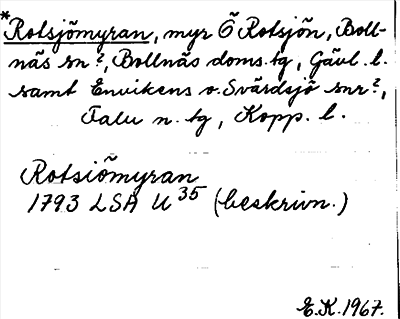 *Rotsjömyran, myr Ö Rotsjön, Boll-
näs sn?, Bollnäs doms. tg, Gävl. l.
samt Envikens o. Svärdsjö snr?,
Falu n. tg, Kopp. l.
Rotsiömyran
1793 LSA U 35 (beskrivn.)
E.K. 1967.